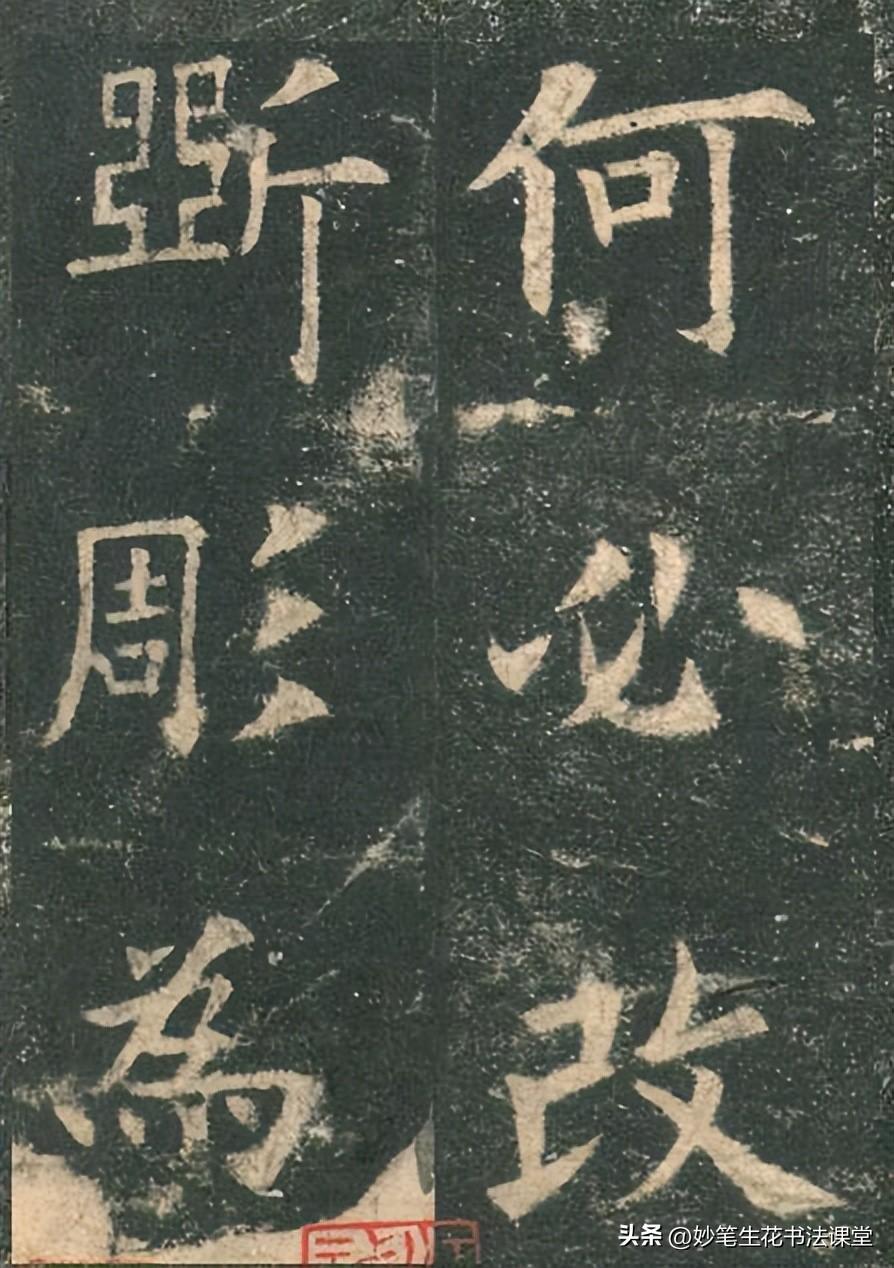 何必改
斵彫為
头条 @妙笔生花书法课堂